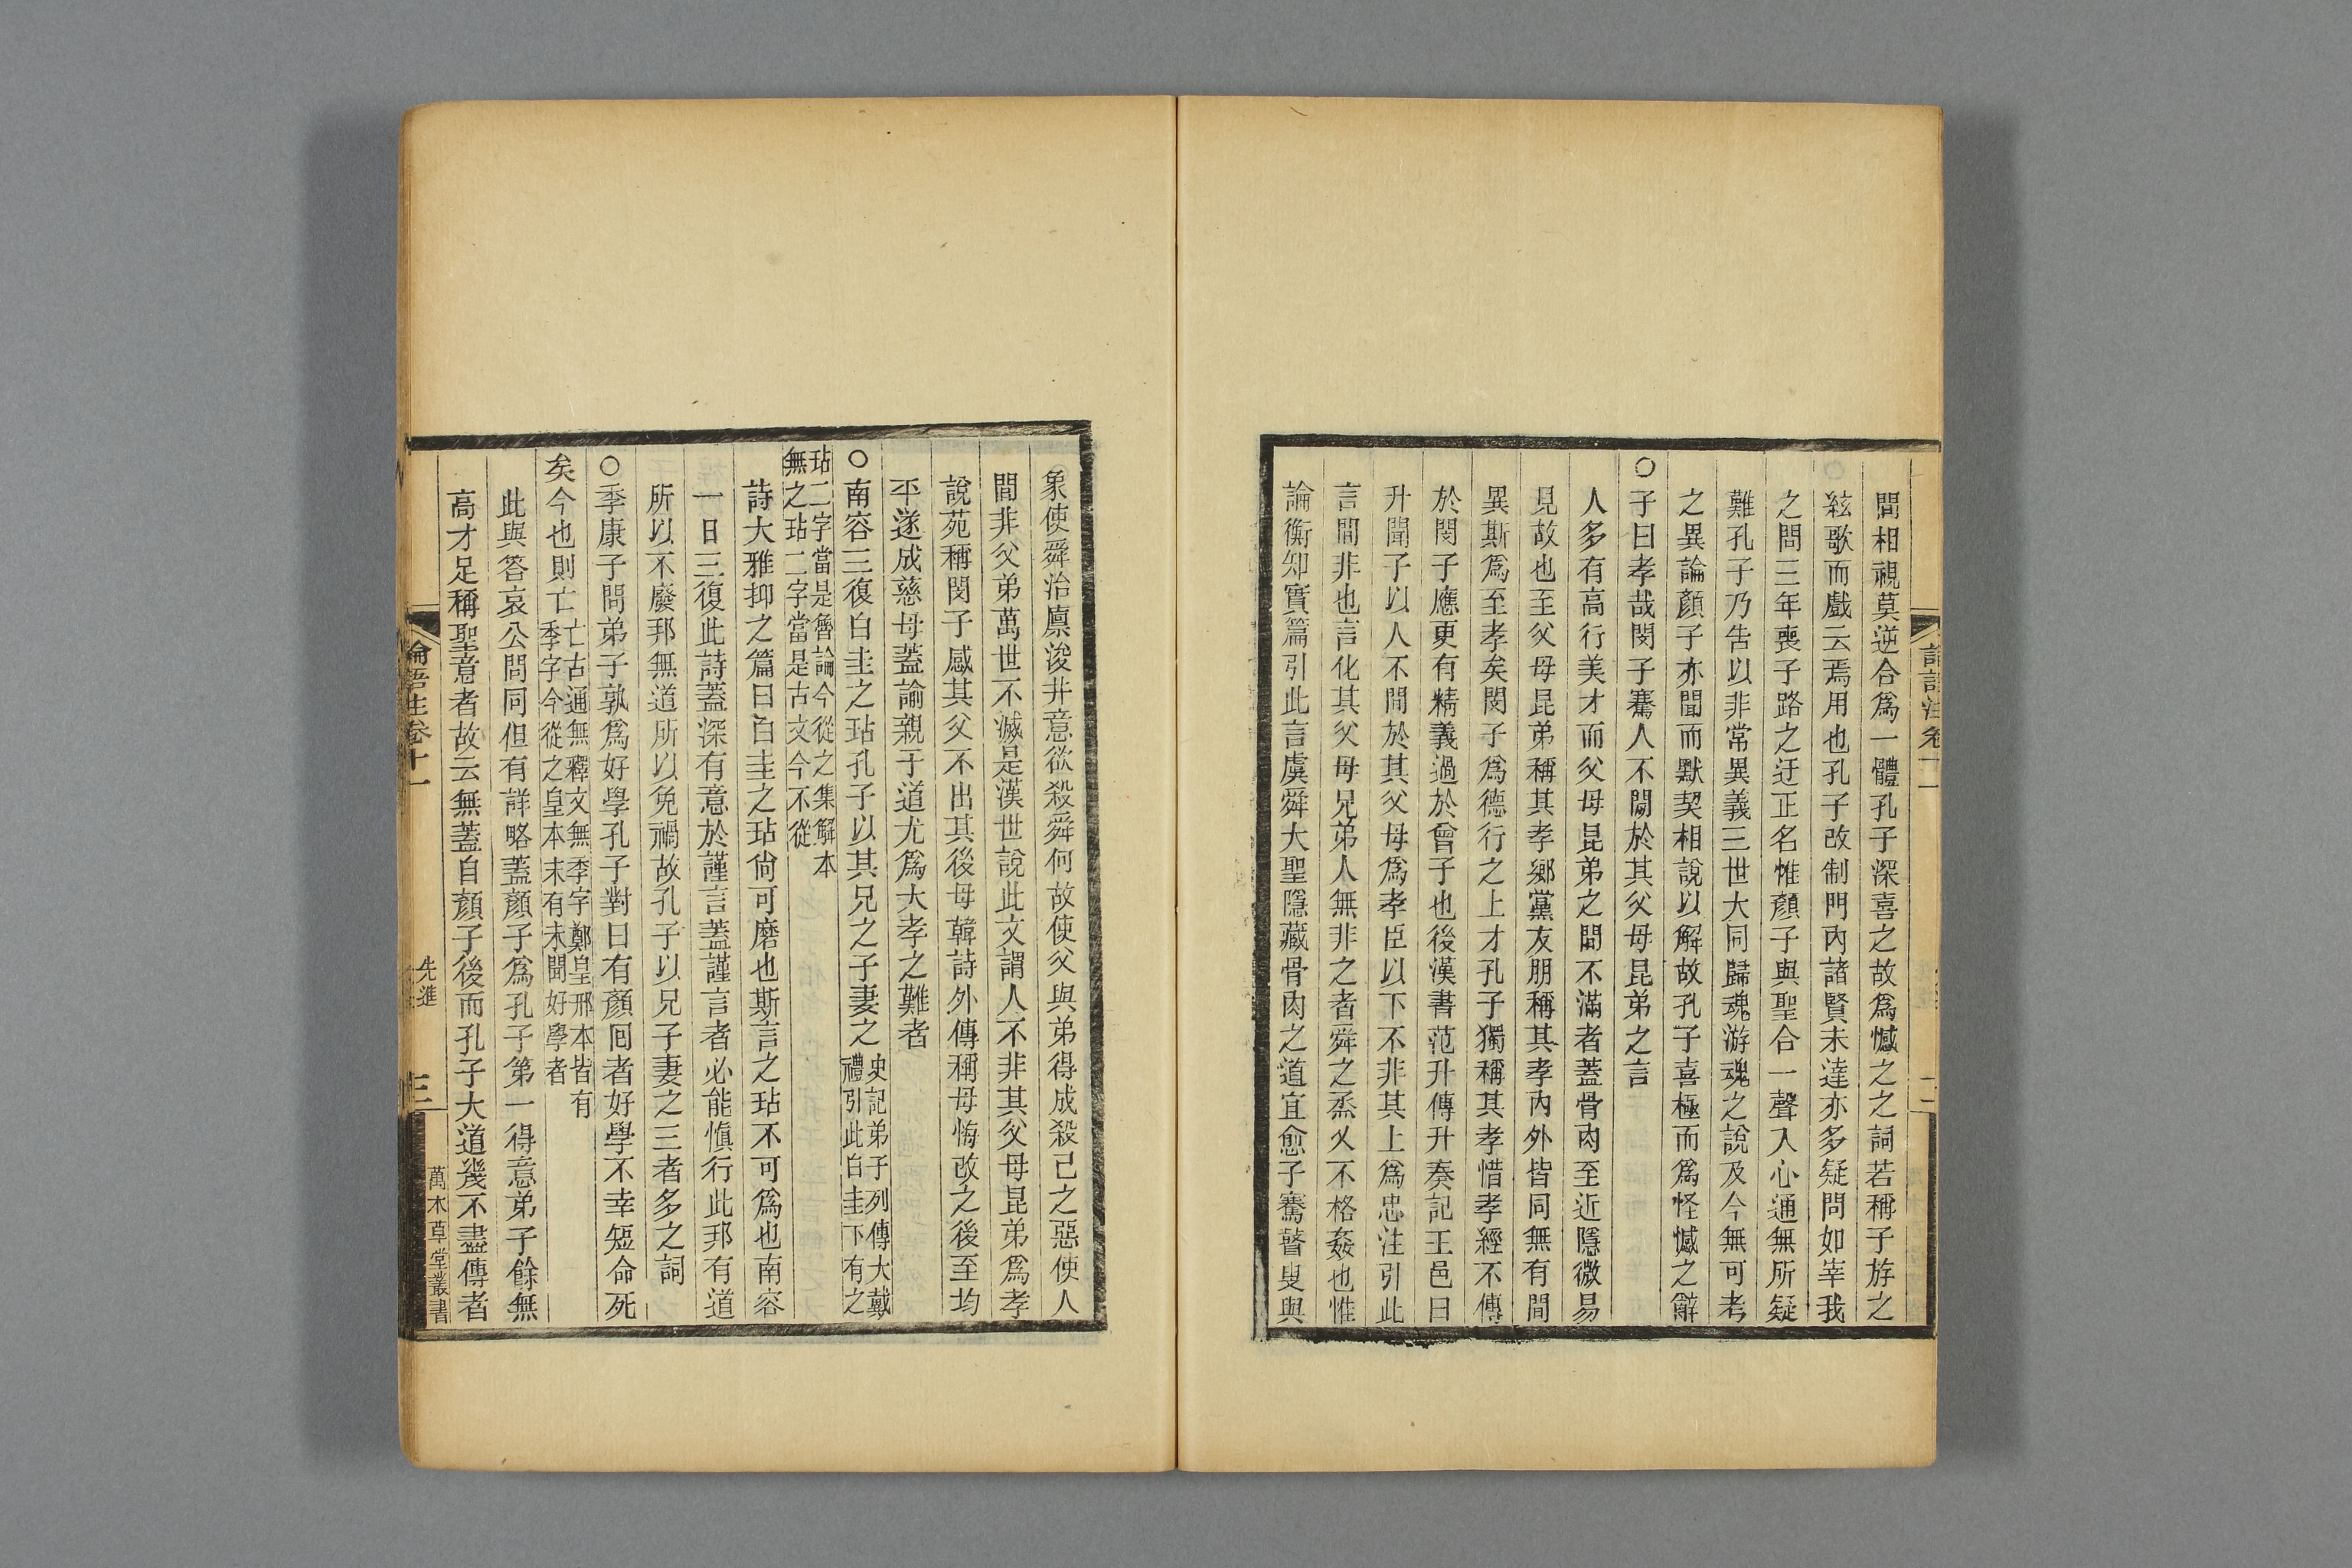 間相視莫逆合爲一體孔子深喜之故爲憾之之詞若稱子斿之
絃歌而戲云焉用也孔子改制門內諸賢未達亦多疑問如宰我
之問三年喪子路之迂正名惟顏子與聖合一聲入心通無所疑
難孔子乃告以非常異義三世大同歸魂游魂之說及今無可考
之異論顏子亦聞而默契相說以解故孔子喜極而爲怪憾之辭
○子曰孝哉閔子騫人不間於其父母昆弟之言
人多有高行美才而父母昆弟之間不滿者蓋骨肉至近隱微易
見故也至父母昆弟稱其孝鄉黨友朋稱其孝內外皆同無有間
異斯爲至孝矣閔子爲德行之上才孔子獨稱其孝惜孝經不傳
於閔子應更有精義過於曾子也後漢書范升傳升奏記王邑曰
升聞子以人不間於其父母爲孝臣以下不非其上爲忠注引此
言間非也言化其父母兄弟人無非之者舜之烝乂不格姦也惟
論衡知實篇引此言虞舜大聖隱藏骨肉之道宜愈子騫瞽叟與
象使舜治廩浚井意欲殺舜何故使父與弟得成殺己之惡使人
間非父弟萬世不滅是漢世說此文謂人不非其父母昆弟爲孝
說苑稱閔子感其父不出其後母韓詩外傳稱母悔改之後至均
平遂成慈母蓋諭親于道尤爲大孝之難者
○南容三復白圭之玷孔子以其兄之子妻之 史記弟子列傳大戴禮引此白圭下有之
玷二字當是魯論今從之集解本無之玷二字當是古文今不從
詩大雅抑之篇曰白圭之玷尙可磨也斯言之玷不可爲也南容
一日三復此詩蓋深有意於謹言蓋謹言者必能愼行此邦有道
所以不廢邦無道所以免禍故孔子以兄子妻之三者多之詞
○季康子問弟子孰爲好學孔子對曰有顏囘者好學不幸短命死
矣今也則亡 亡古通無釋文無季字鄭皇邢本皆有季字今從之皇本末有未聞好學者
此與答哀公問同但有詳略蓋顏子爲孔子第一得意弟子餘無
高才足稱聖意者故云無蓋自顏子後而孔子大道幾不盡傳者
論語注卷十一
先進
三
萬木草堂叢書